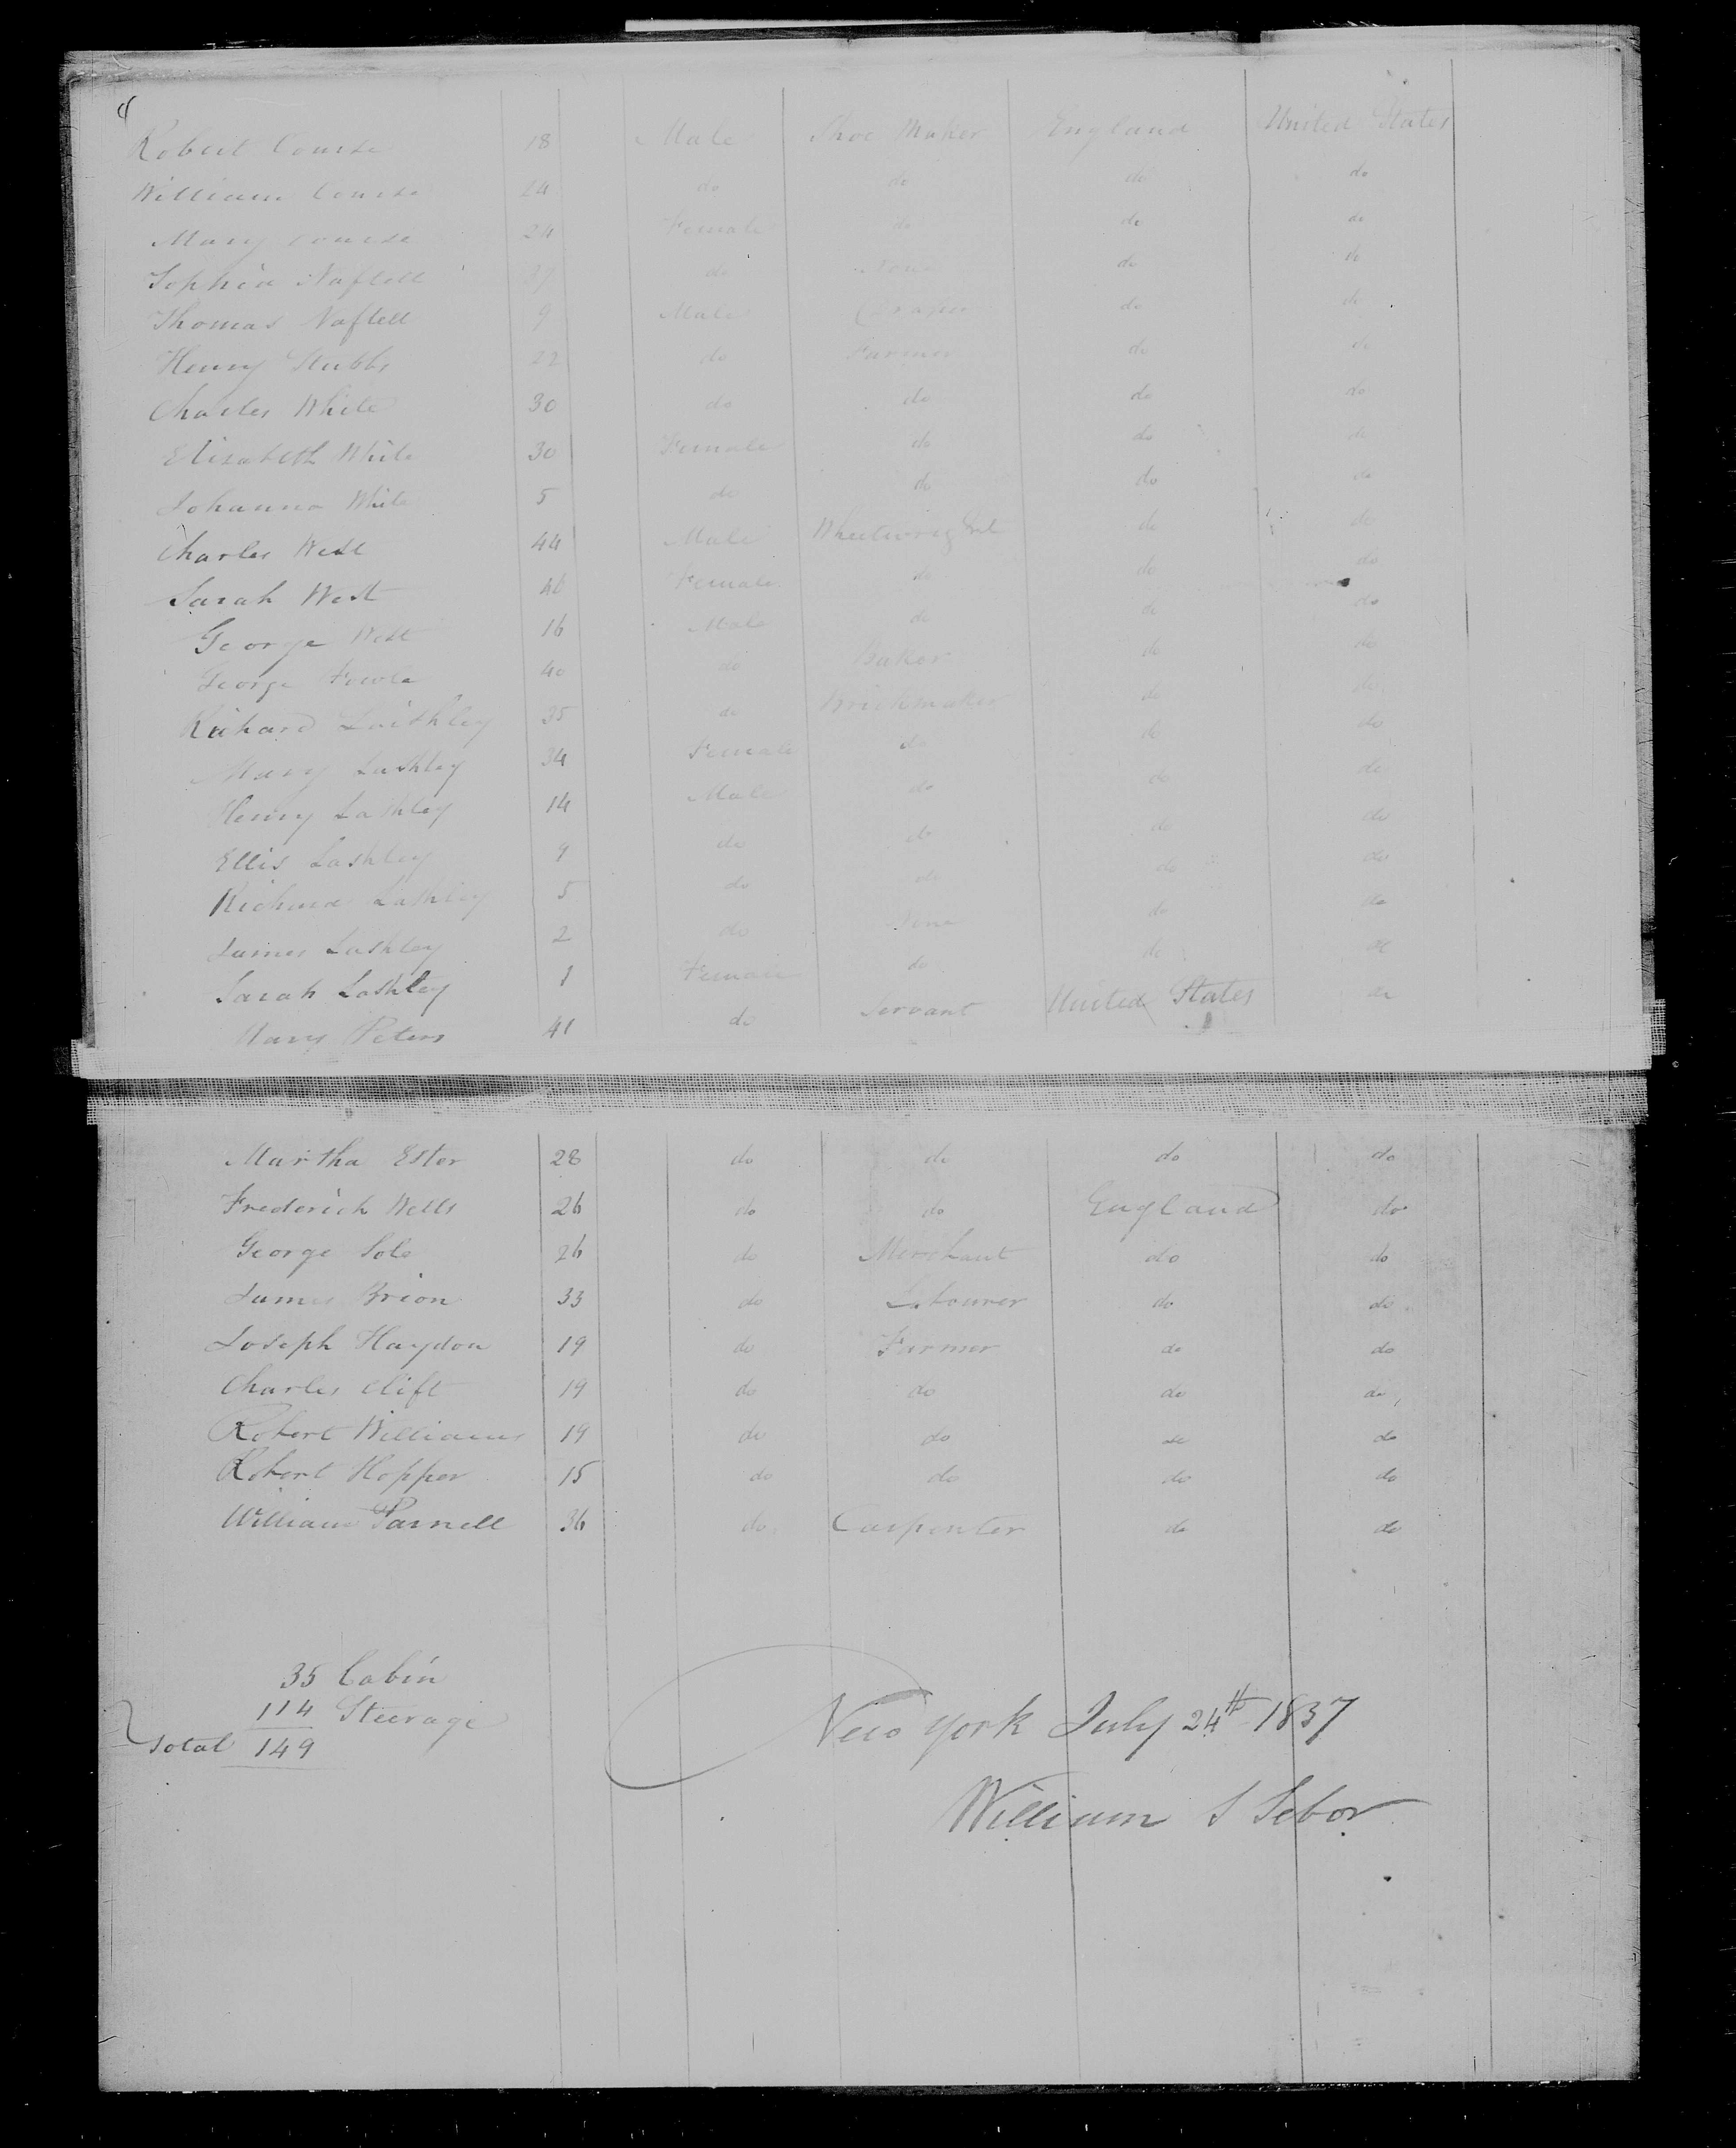 4
Robert Course 18 Male Shoe Maker England United States
William Course 24 do do do do
Mary Course 24 Female do do do
Sophia Naftell 37 do None do do
Thomas Naftell 9 Male Draper do do
Henry Stubbs 22 do Farmer do do
Charles White 30 do do do do
Elizabeth White 30 Female do do do
Johanna White 5 do do do do
Charles West 44 Male Wheelwright do do
Sarah West 46 Female do do do
George West 16 Male do do do
George Fowle 40 do Baker do do
Richard Laishley 35 do Brickmaker do do
Mary Lashley 34 Female do do do
Henry Lashley 14 Male do do do
Ellis Lashley 9 do do do do
Richard Lashley 5 do do do do
James Lashley 2 do None do do
Sarah Lashley 1 Female do do do
Mary Peters 41 do Servant United States do
Martha Ester 28 do do do do
Frederick Wells 26 do do England do
George Sole 26 do Merchant do do
James Brion 33 do Labourer do do
Joseph Haydon 19 do Farmer do do
Charles Clift 19 do do do do
Robert Williams 19 do do do do
Robert Hopper 15 do do do do
William Parnell 36 do Carpenter do do
35 Cabin
114 Steerage
Total 149
New York July 24th 1837
William S Sebor